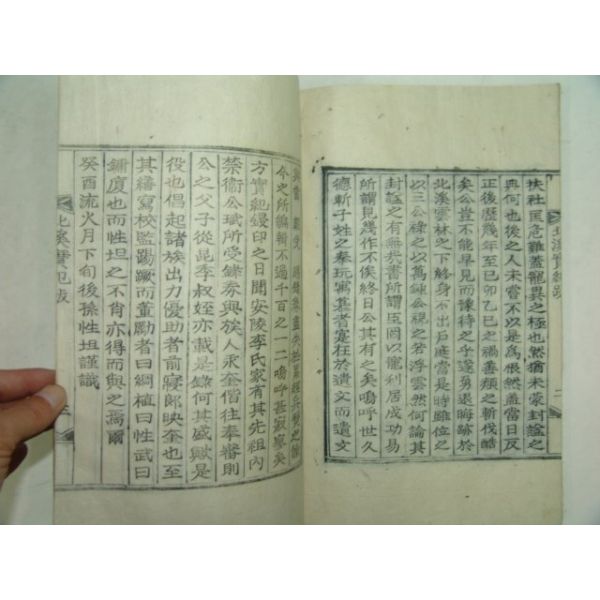 扶社匡危難蓋寵異之極也然猶未蒙封謚之
典何也後之人未嘗不以是爲悵然蓋當日反
正後歷幾年至己卯乙巳之禍善類之斬伐酷
矣公豈不能早見而豫待之乎遂勇退晦跡於
北溪雲林之下終身不出戶庭當是時雖位之
以三公祿之以萬鍾公視之若浮雲然何論其
封謚之有無哉書所謂臣罔以寵利居成功易
所謂見幾作不俟終日公其有之矣嗚呼世久
德斬子姓之奉玩寓慕者寔在於遺文而遺文
今之所編輯不過千百之一二嗚呼甚寂寥矣
方實紀鋟印之日聞安陵李氏家有其先祖內
禁衛公珷所受錄券與族人永奎偕往奉審則
公之父子從昆季叔姪亦載是錄何其盛歟是
役也倡起諸族出力優助者前寢郞映奎也至
其繕寫校監踢蹶而董勵者曰綱植曰性武曰
鏞廈也而性坦之不肖亦得而與之焉爾
癸酉流火月下旬後孫性坦謹識
北溪實紀跋